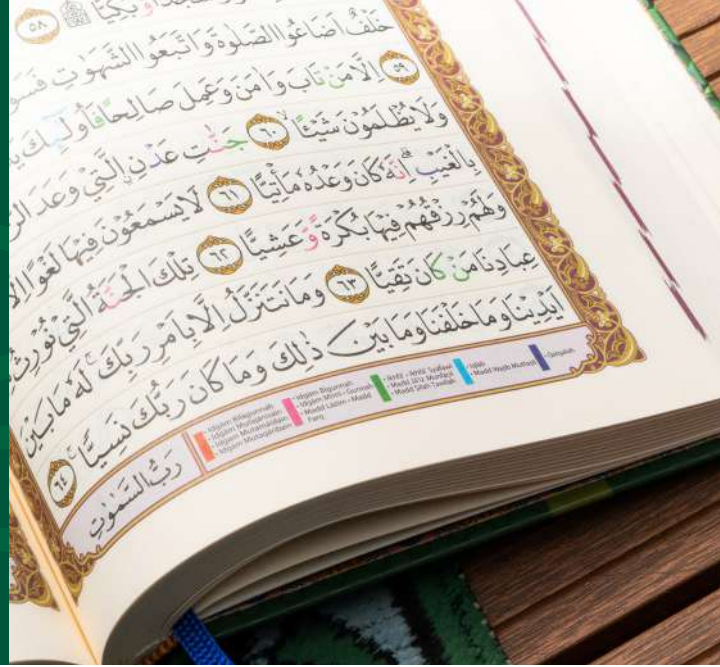 وَّبُكِيًّا ۩ ٥٨
خَلْفٌ اَضَاعُوا الصَّلٰوةَ وَاتَّبَعُوا الشَّهَوٰتِ
٥٩ اِلَّا مَنْ تَابَ وَاٰمَنَ وَعَمِلَ صَالِحًا فَاُولٰۤىِٕكَ
وَلَا يُظْلَمُوْنَ شَيْـًٔاۙ ٦٠ جَنّٰتِ عَدْنِ ِۨالَّتِيْ وَعَدَ
بِالْغَيْبِۗ اِنَّهٗ كَانَ وَعْدُهٗ مَأْتِيًّا ٦١ لَا يَسْمَعُوْنَ فِيْهَا لَغْوًا
وَلَهُمْ رِزْقُهُمْ فِيْهَا بُكْرَةً وَّعَشِيًّا ٦٢ تِلْكَ الْجَنَّةُ الَّتِيْ
عِبَادِنَا مَنْ كَانَ تَقِيًّا ٦٣ وَمَا نَتَنَزَّلُ اِلَّا بِاَمْرِ رَبِّكَۚ لَهٗ مَا بَيْنَ
اَيْدِيْنَا وَمَا خَلْفَنَا وَمَا بَيْنَ ذٰلِكَ وَمَا كَانَ رَبُّكَ نَسِيًّاۚ ٦٤
• Idgām Bilāgunnah
• Idgām Mutajānisain
• Idgām Mutamāṡilain
• Idgām Mutaqāribain
• Idgām Bigunnah
• Idgām Mimi • Gunnah
• Madd Lāzim • Madd
Farq
• Ikhfā' • Ikhfā' Syafawī
• Madd Jā'iz Munfaṣil
• Madd Ṣilah Ṭawīlah
• Iqlāb
• Madd Wajib Muttaṣil
• Qalqalah
رَبُّ السَّمٰوٰتِ